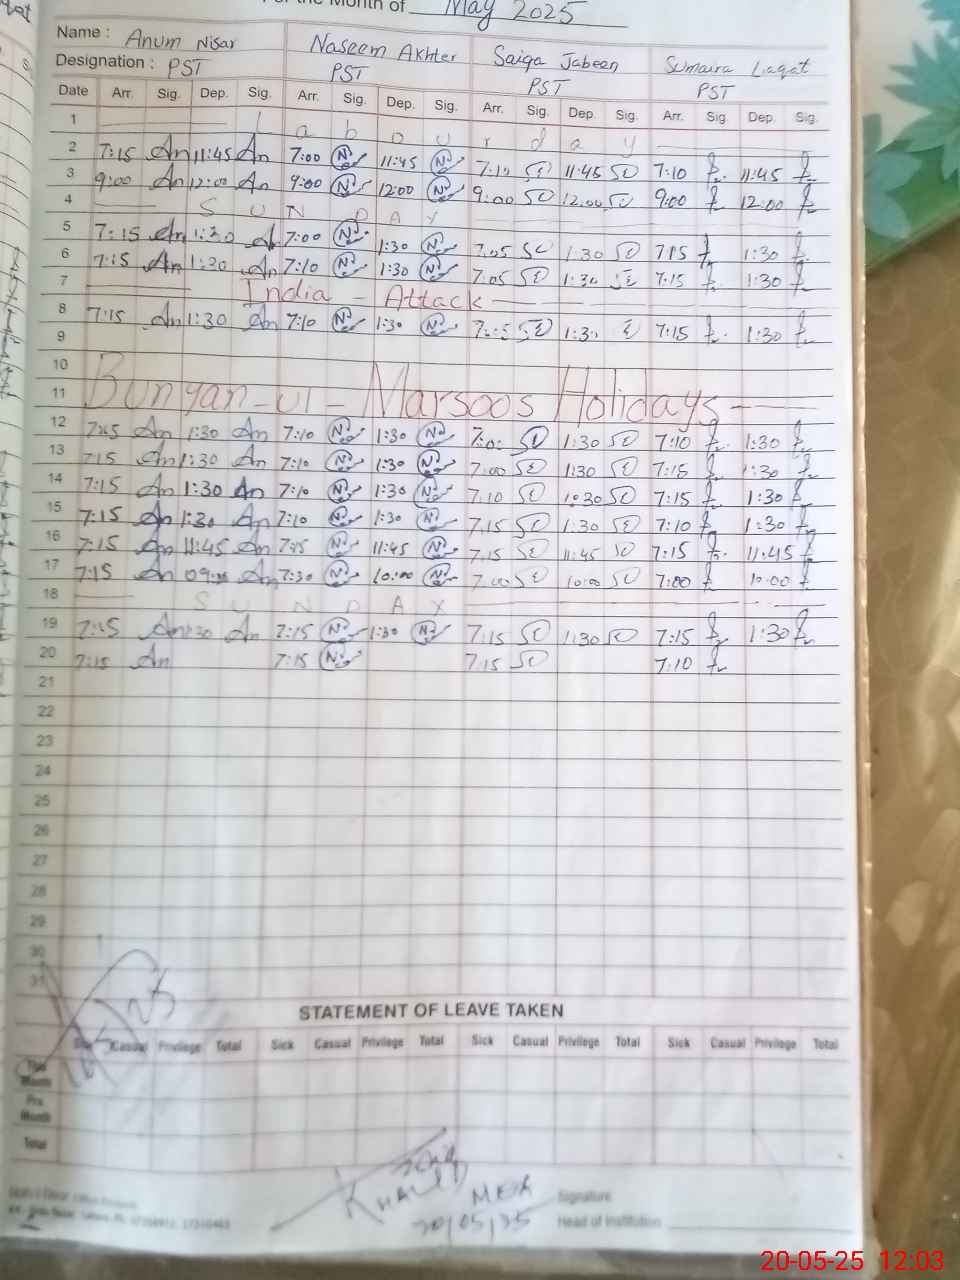 the Month of May 2025
Name : Anum Nisar Naseem Akhter Saiqa Jabeen Sumaira Liaqat
Designation : PST PST PST PST
Date Arr. Sig. Dep. Sig. Arr. Sig. Dep. Sig. Arr. Sig. Dep. Sig. Arr. Sig. Dep. Sig.
1 Labour day
2 7:15 An 11:45 An 7:00 N 11:45 N 7:10 SJ 11:45 SJ 7:10 11:45
3 9:00 An 12:00 An 9:00 N 12:00 N 9:00 SJ 12:00 SJ 9:00 12:00
4 SUNDAY
5 7:15 An 1:30 A 7:00 N 1:30 N 7:05 SJ 1:30 SJ 7:15 1:30
6 7:15 An 1:30 An 7:10 N 1:30 N 7:05 SJ 1:30 SJ 7:15 1:30
7 India - Attack
8 7:15 An 1:30 An 7:10 N 1:30 N SJ 1:30 7:15 1:30
9
10
11 Bunyan-ul-Marsoos Holidays
12 An 1:30 An 7:10 N 1:30 N SJ 1:30 SJ 7:10 1:30
13 7:15 An 1:30 An 7:10 N 1:30 N 7:00 SJ 1:30 SJ 7:15 1:30
14 7:15 An 1:30 An 7:10 N 1:30 N 7:10 SJ SJ 7:15 1:30
15 7:15 An 1:30 An 7:10 N 1:30 N 7:15 SJ 1:30 SJ 7:10 1:30
16 7:15 An 11:45 An 7:15 N 11:45 N 7:15 SJ 11:45 SJ 7:15 11:45
17 7:15 An An 7:30 N 10:00 N 7:00 SJ 10:00 SJ 7:00 10:00
18 SUNDAY
19 An An 7:15 N 1:30 N 7:15 SJ 1:30 SJ 7:15 1:30
20 7:15 An 7:15 N 7:15 SJ 7:10
21
22
23
24
25
26
27
28
29
30
31
STATEMENT OF LEAVE TAKEN
Sick Casual Privilege Total Sick Casual Privilege Total Sick Casual Privilege Total Sick Casual Privilege Total
This Month
Pre Month
Total
MEA
20/05/25
Signature
Head of Institution
20-05-25 12:03